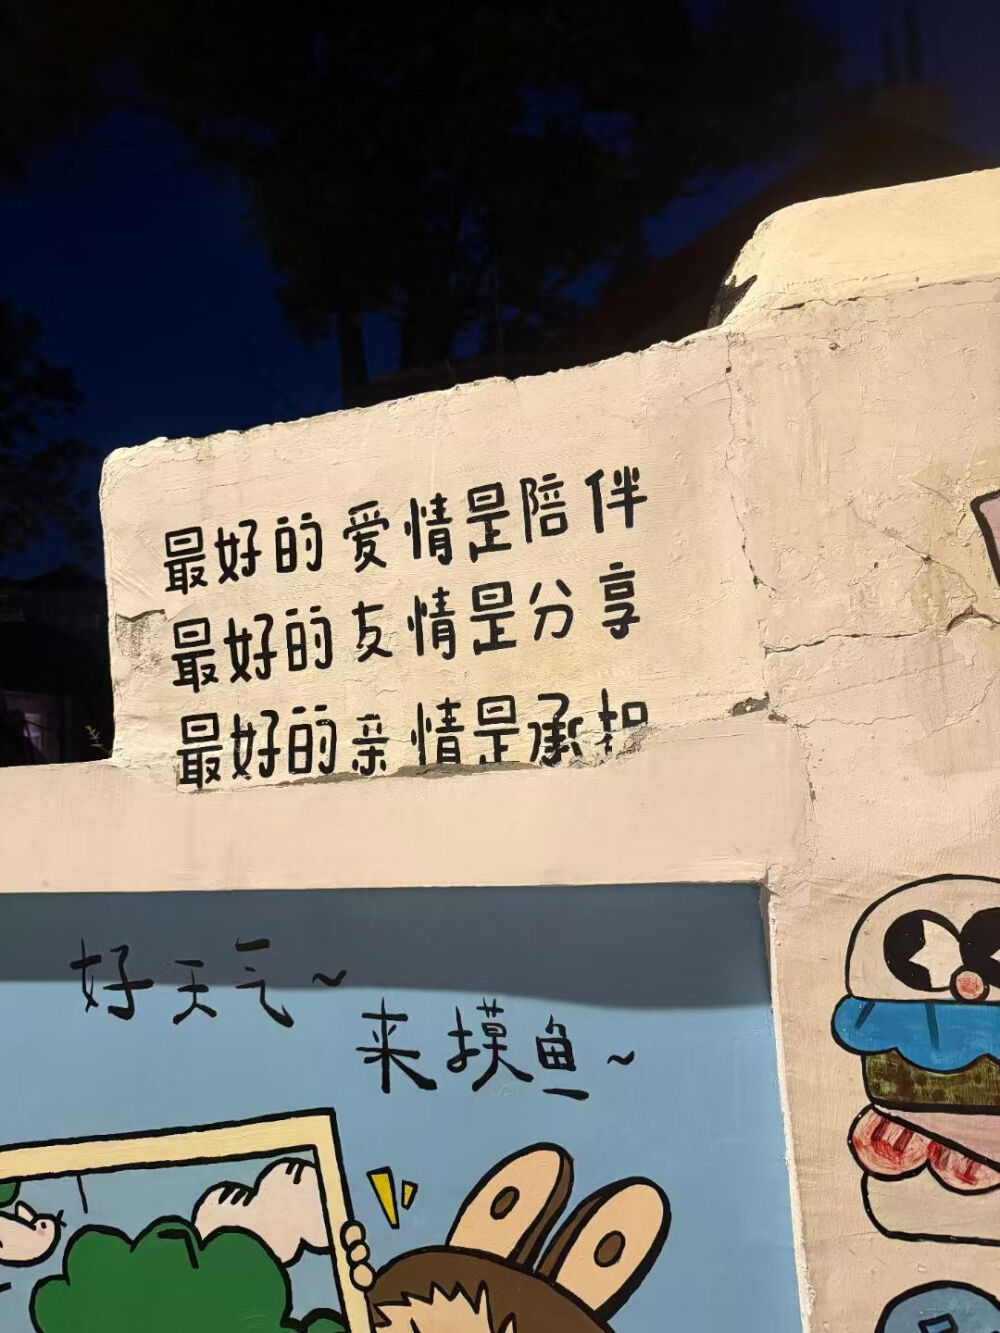 最好的爱情是陪伴
最好的友情是分享
最好的亲情是承担
好天气~
来摸鱼~